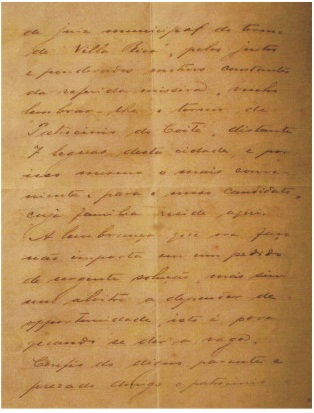 de juiz municipal do termo
de Villa Rica, pelos justos
e ponderados motivos constantes
da referida missiva, venho
lembrar-lhe o termo de
Patrocinio do Coité, distante
7 leguas desta cidade, e por
isso mesmo o mais conve-
niente, para o nosso candidato,
cuja familia reside aqui.
A lembrança que ora faço
não importa em um pedido
de urgente solução, mas sim
um alvitre a depender de
opportunidade, isto é para
quando se der a vaga.
Confio do digno parente e
prezado amigo o patrocinio